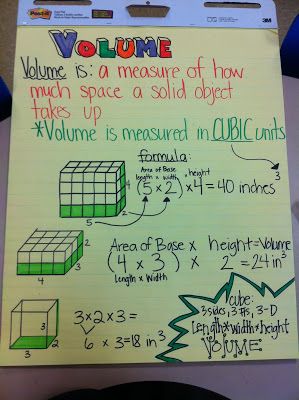 Post-it
3M
VOLUME
Volume is: a measure of how
much space a solid object
takes up
*Volume is measured in CUBIC units
3
formula:
Area of Base
length x width x height
(5 x 2) x 4 = 40 inches
4
2
5
Area of Base x height = Volume
(4 x 3) x 2 = 24 in³
Length x Width
2
3
4
3 x 2 x 3 =
6 x 3 = 18 in³
3
2
3
Cube:
3 sides, 3 #s, 3-D
Length x width x height
VOLUME